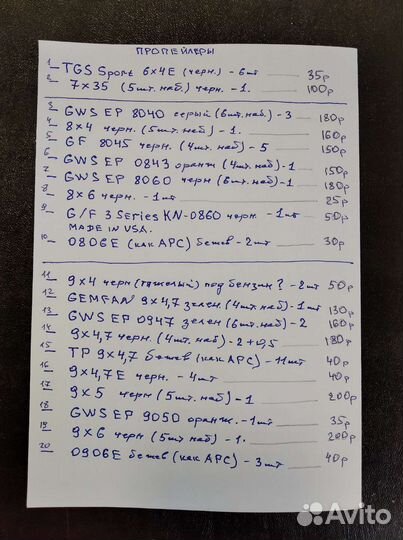 ПРОПЕЛЛЕРЫ
1 TGS Sport 6x4E (черн.) - 6шт 35р
2 7x35 (5шт. наб.) черн. - 1. 100р
3 GWS EP 8040 серый (6шт. наб.) - 3 180р
4 8x4 черн. (5шт. наб.) - 1. 160р
5 GF 8045 черн. (4шт. наб.) - 5 150р
6 GWS EP 0843 оранж (4шт. наб) - 1 150р
7 GWS EP 8060 черн (6шт. наб) - 1 180р
8 8x6 черн. - 1шт 25р
9 G/F 3 Series KN-0860 черн. - 1шт 50р
MADE IN USA.
10 0806E (как APC) бежев - 2шт 30р
11 9x4 черн (тяжелый) под бензин? - 2шт 50р
12 GEMFAN 9x4,7 зелен. (4шт. наб) - 1шт 130р
13 GWS EP 0947 зелен (6шт. наб) - 2 160р
14 9x4,7 черн. (4шт. наб.) - 2+0,5 180р
15 TP 9x4,7 бежев (как APC) - 11шт 40р
16 9x4,7E черн. - 4шт 40р
17 9x5 черн (5шт. наб) - 1 200р
18 GWS EP 9050 оранж. - 1шт 35р
19 9x6 черн (5шт наб) - 1. 200р
20 0906E бежев (как APC) - 3шт 40р
Avito